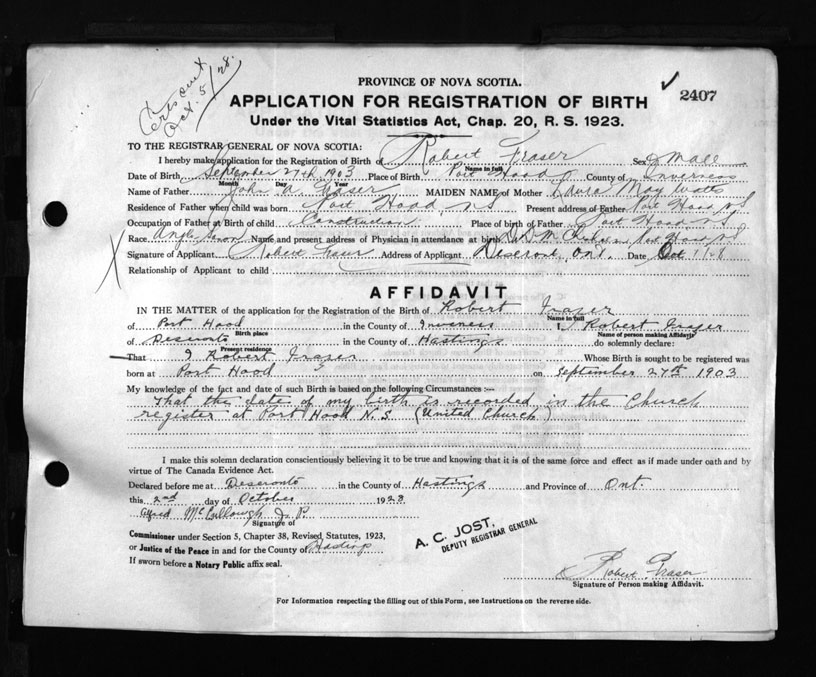 Cert sent
Oct. 5/28.
PROVINCE OF NOVA SCOTIA.
✓ 2407
APPLICATION FOR REGISTRATION OF BIRTH
Under the Vital Statistics Act, Chap. 20, R. S. 1923.
TO THE REGISTRAR GENERAL OF NOVA SCOTIA:
I hereby make application for the Registration of Birth of Robert Fraser Sex Male
Name in full
Date of Birth September 27th 1903 Place of Birth Port Hood County of Inverness
Month Day Year
Name of Father John Fraser MAIDEN NAME of Mother Laura May Watts
Residence of Father when child was born Port Hood, N.S Present address of Father Port Hood N.S
Occupation of Father at Birth of child Construction Place of birth of Father Port Hood N.S
Race Anglo Saxon Name and present address of Physician in attendance at birth Port Hood N.S
Signature of Applicant Robert Fraser Address of Applicant Deseronto, Ont. Date Oct 1/28
Relationship of Applicant to child
AFFIDAVIT
IN THE MATTER of the application for the Registration of the Birth of Robert Fraser
Name in full
of Port Hood in the County of Inverness I, Robert Fraser
Birth place Name of person making Affidavit
of Deseronto in the County of Hastings do solemnly declare:
Present residence
That I Robert Fraser Whose Birth is sought to be registered was
born at Port Hood on September 27th 1903
My knowledge of the fact and date of such Birth is based on the following Circumstances :—
That the date of my birth is recorded in the Church
register at Port Hood N.S. (United Church)
I make this solemn declaration conscientiously believing it to be true and knowing that it is of the same force and effect as if made under oath and by
virtue of The Canada Evidence Act.
Declared before me at Deseronto in the County of Hastings and Province of Ont.
this 2nd day of October 1928
Alfred McCullough J. P.
Signature of
Commissioner under Section 5, Chapter 38, Revised Statutes, 1923,
or Justice of the Peace in and for the County of Hastings
If sworn before a Notary Public affix seal.
A. C. JOST,
DEPUTY REGISTRAR GENERAL
x Robert Fraser
Signature of Person making Affidavit.
For Information respecting the filling out of this Form, see Instructions on the reverse side.